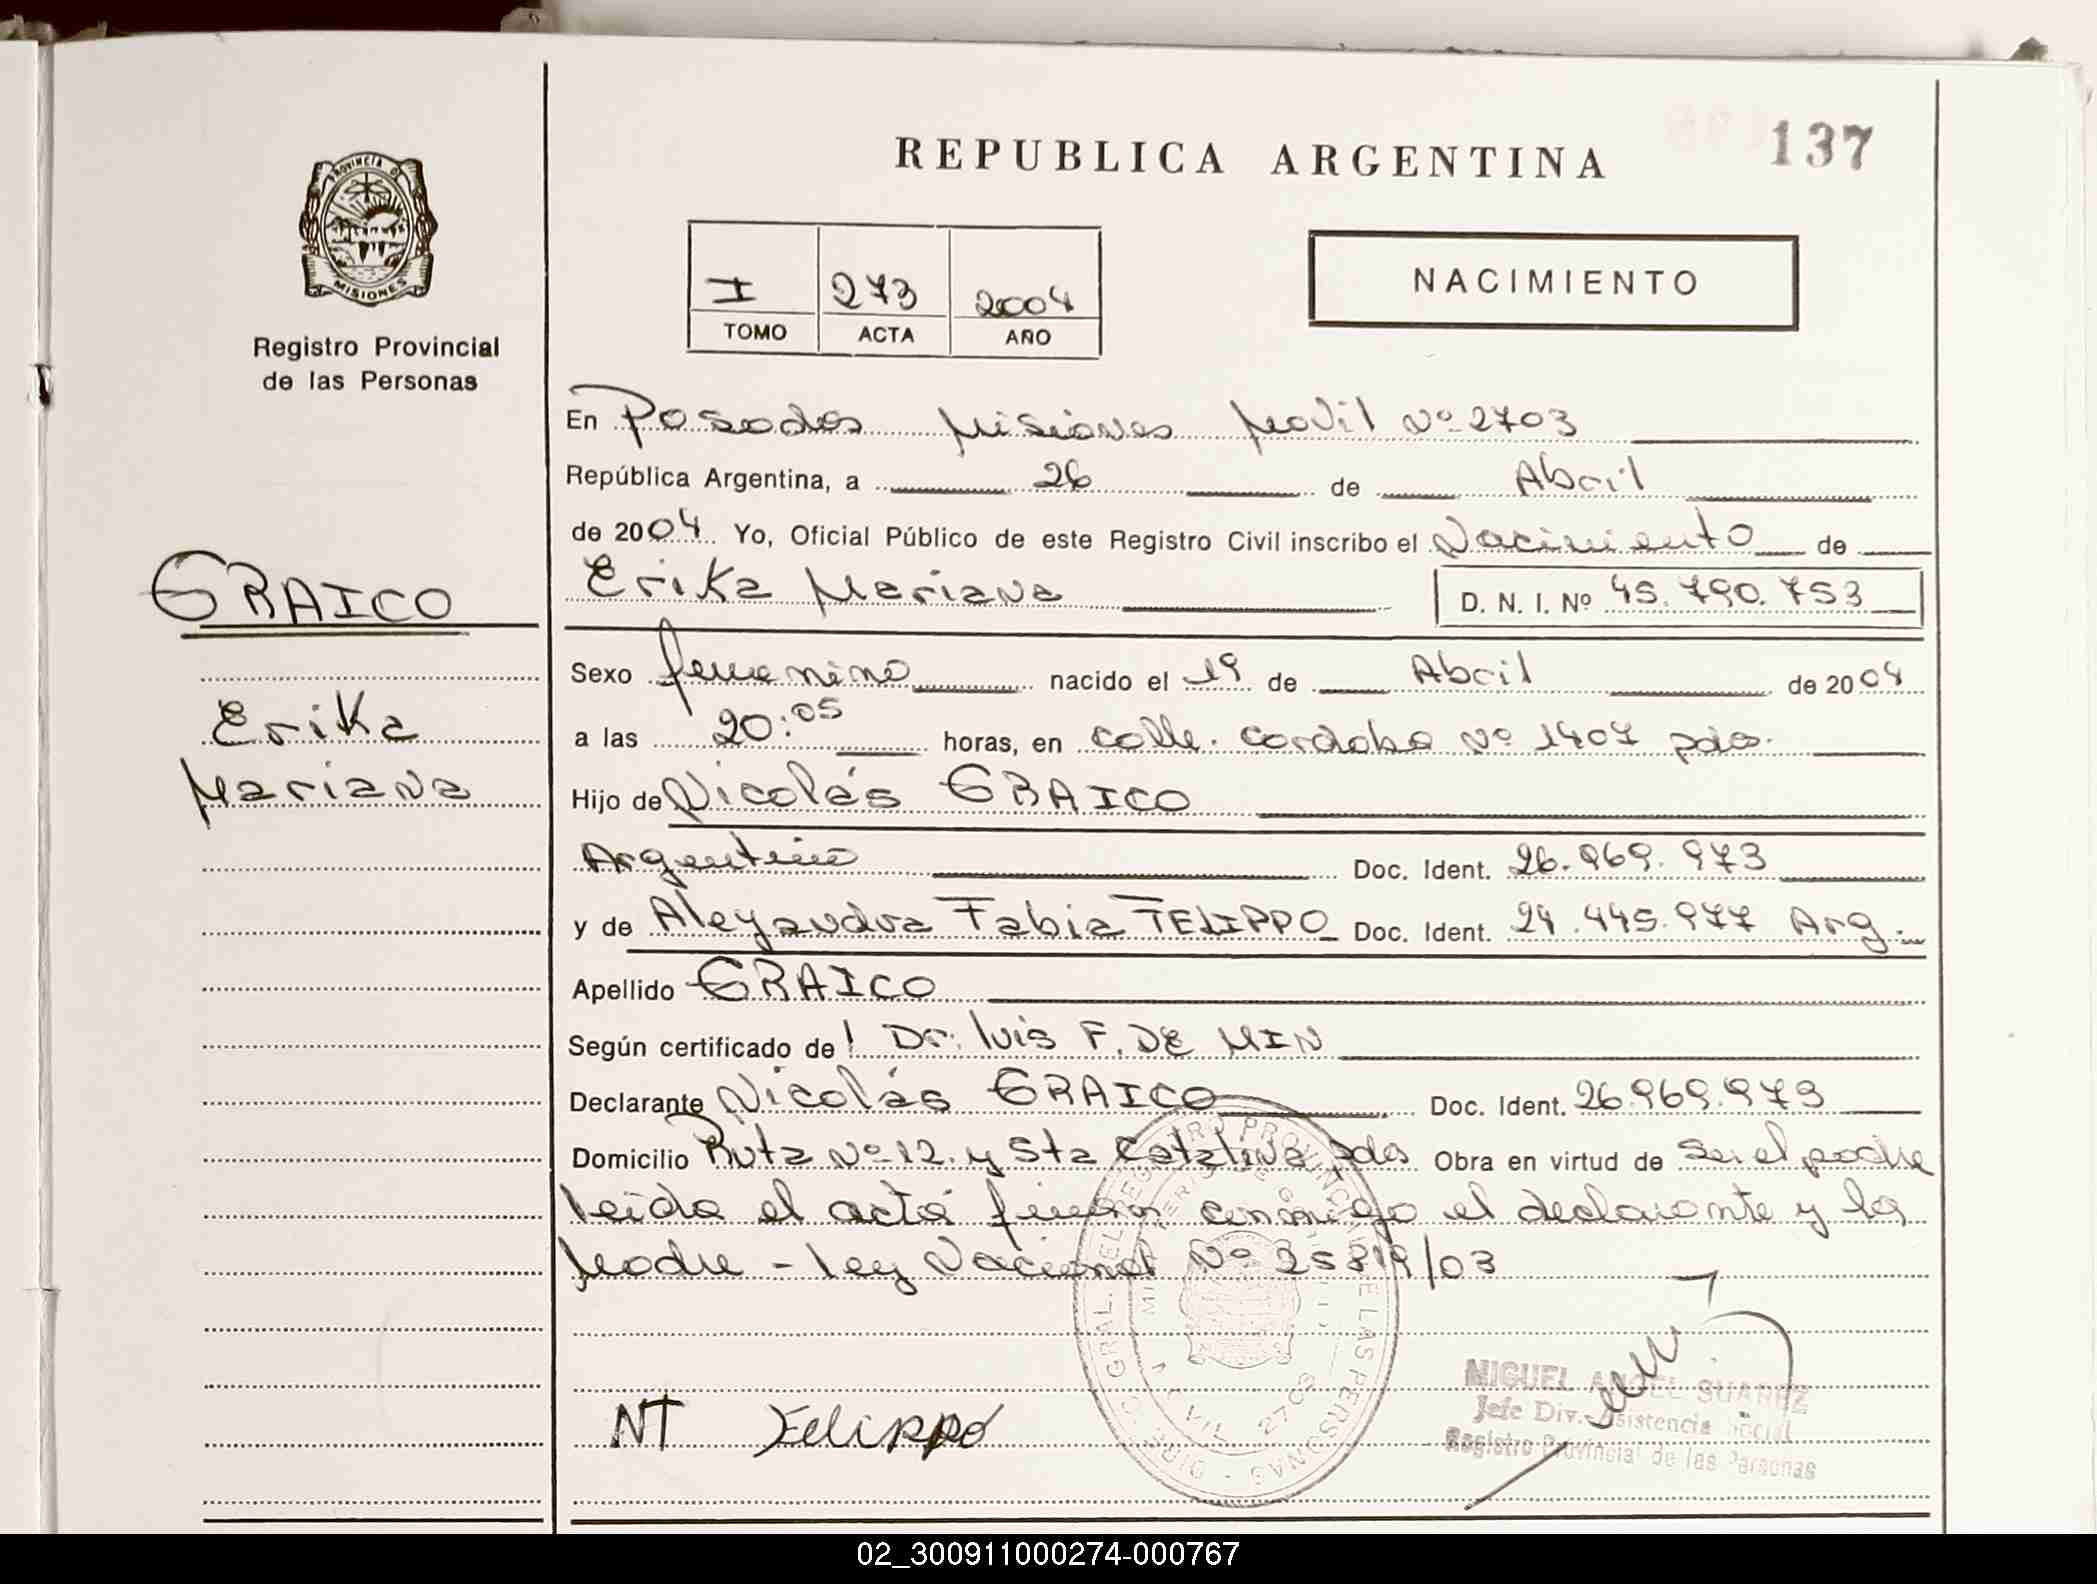 REPUBLICA ARGENTINA
137
PROVINCIA DE
MISIONES
Registro Provincial
de las Personas
I 273 2004
TOMO ACTA AÑO
NACIMIENTO
En Posadas Misiones Movil Nº 2703
República Argentina, a 26 de Abril
de 2004 Yo, Oficial Público de este Registro Civil inscribo el Nacimiento de
Erika Mariana D. N. I. Nº 45.790.753
GRAICO
Erika
Mariana
Sexo femenino nacido el 19 de Abril de 2004
a las 20:05 horas, en calle. Cordoba Nº 1407 pdas.
Hijo de Nicolás GRAICO
Argentino Doc. Ident. 26.969.973
y de Aleyandra Fabia FELIPPO Doc. Ident. 24.445.977 Arg.
Apellido GRAICO
Según certificado de Dr. Luis F. DE MIN
Declarante Nicolás GRAICO Doc. Ident. 26.969.973
Domicilio Ruta Nº 12. y Sta Catalina pdas Obra en virtud de ser el padre
leida el acta firman conmigo el declarante y la
Madre - Ley Nacional Nº 25819/03
NT Felippo
MIGUEL ANGEL SUAREZ
Jefe Div. Asistencia Social
Registro Provincial de las Personas
02_300911000274-000767